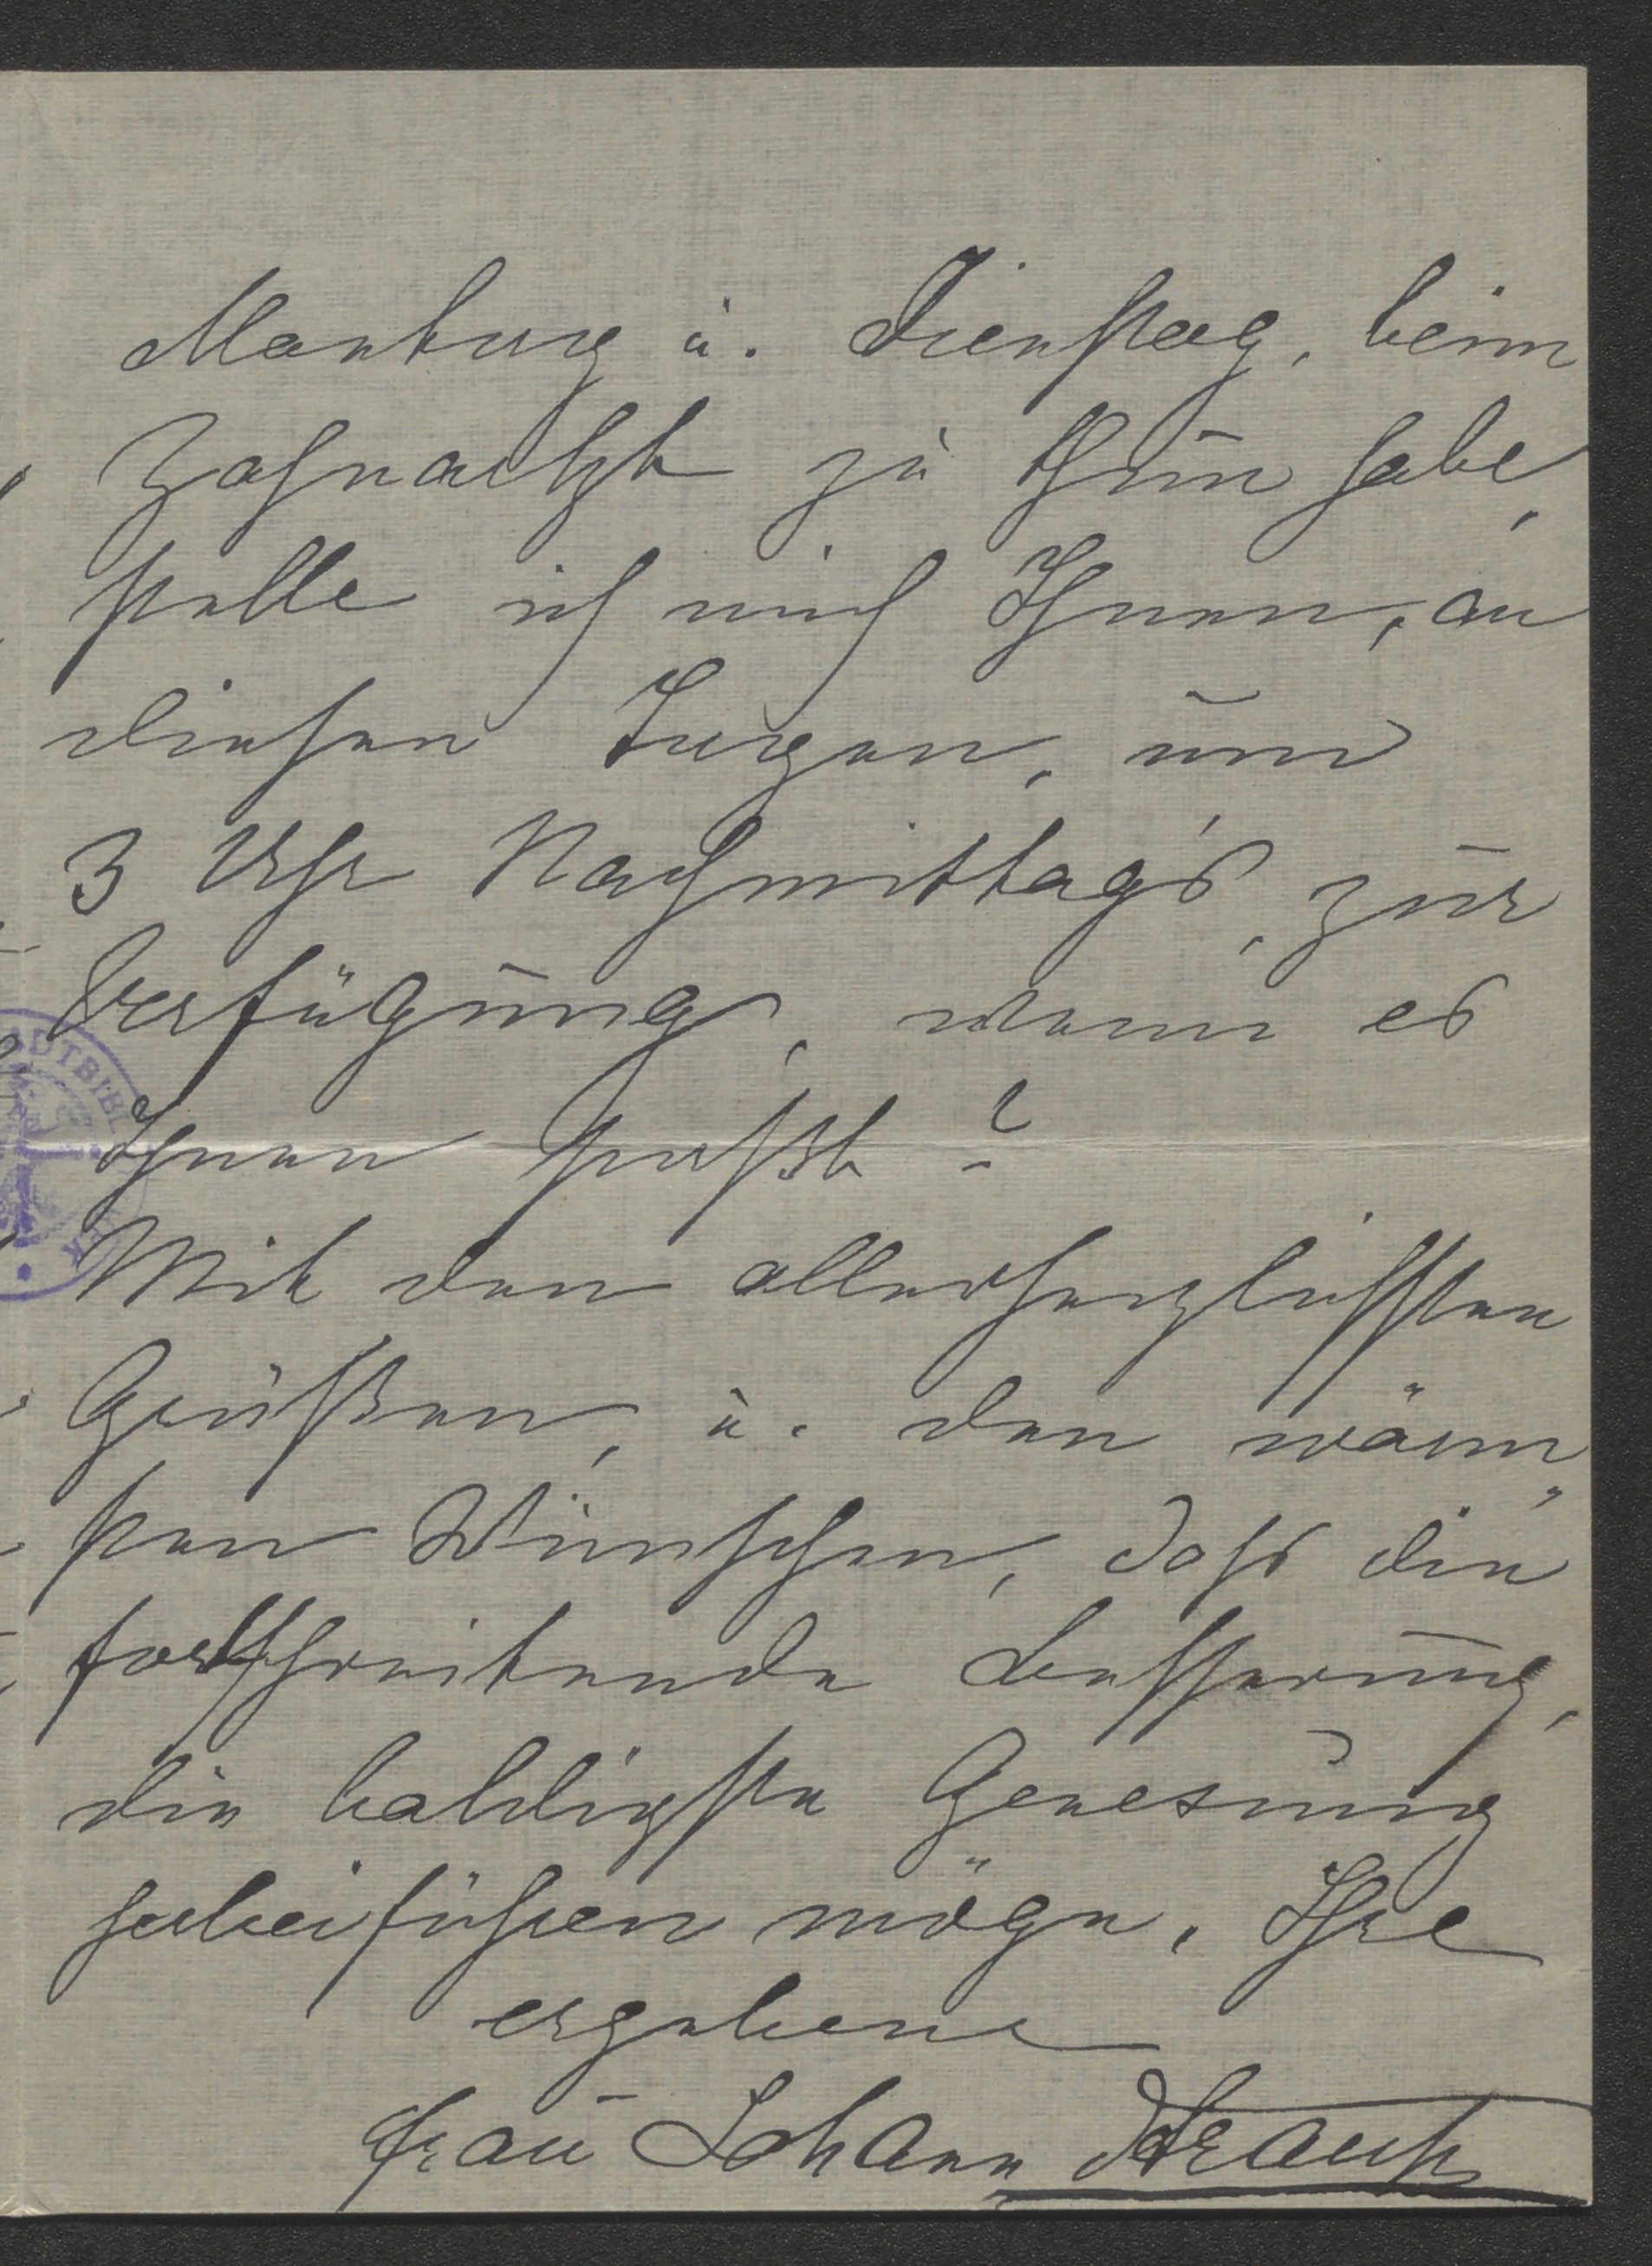 Montag u. Dienstag, beim
Zahnarzt zu thun habe,
stelle ich mich Ihnen, an
diesen Tagen, um
3 Uhr Nachmittag's, zur
Verfügung, wenn es
Ihnen passt?
Mit den allerherzlichsten
Grüßen, u. den wärm„
sten Wünschen, dass die
fortschreitende Besserung,
die baldigste Genesung
herbeiführen möge, Ihre
ergebene
Frau Johann Strauss